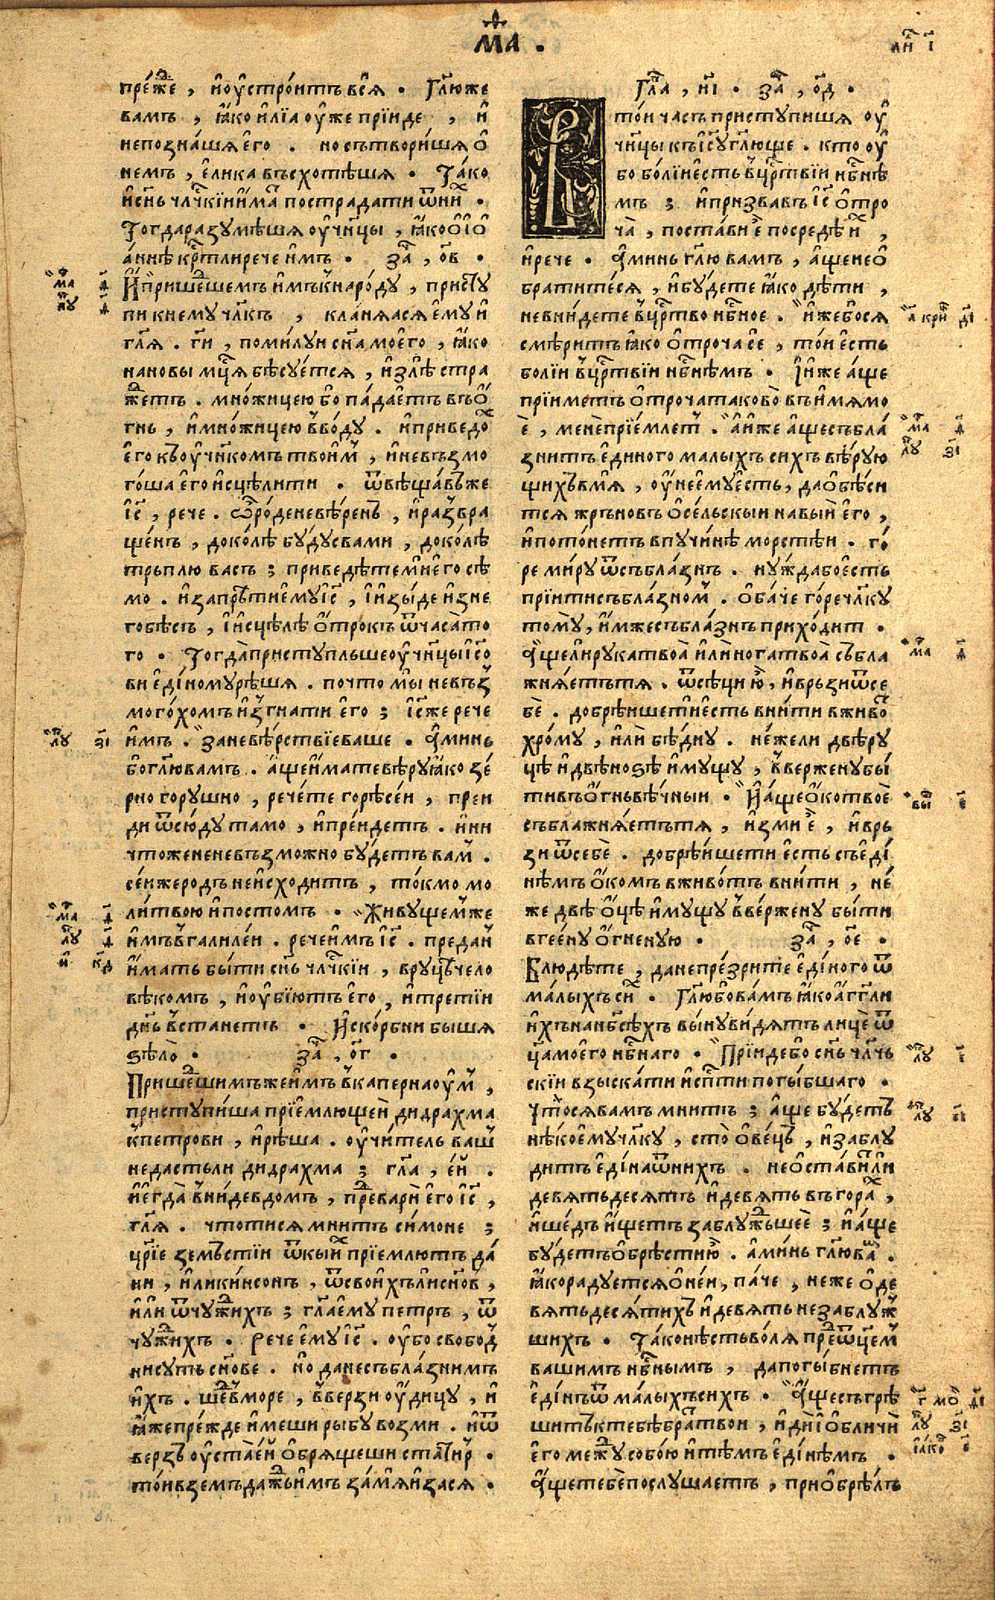 МѲ҃А .
ли҃ і҃
пре́жⷣе , и҆оу҆стро́итъ всѧ . Гл҃юже
вамъ , ꙗ҆́ко и҆лїа оу҆же прїи́де , и҆
непозна́шѧ е҆го . но сътвори́шѧ ѻ҆
немъ , є҆ли́ка въсхотѣ́шѧ . Та́ко
и҆ сн҃ъ чл҃чⷭ҇кїи и҆́матⷨ пострадати ѿ ниⷯ .
Тогда разумѣ́шѧ оу҆чн҃цы , ꙗ҆́ко ѻ҆ і҆ѻ
а́ннѣ крⷭ҇тли рече и҆мъ . заⷱ҇ , о҃в .
И҆ прише́шемъ и҆мъ къ наро́ду , присту
пи к нему чл҃къ , кла́нѧѧсѧ є҆му и҆
гл҃ѧ . гⷭ҇и , поми́луи сн҃а моего , ꙗ҆́ко
на но́вы мцⷭ҇а бѣсу́етсѧ , и҆ ѕлѣ̀ стра
жⷣетъ . мно́жицею бо па́даетъ въ ѻ҆
гнь , и҆ мно́жицею в во́ду . и҆ приведоⷯ
є҆го къ оу҆чн҃комъ твои́мъ , и҆ невъзмо
го́ша є҆го и҆сцѣли́ти . ѿвѣща́въ же
і҆с҃ , рече . ѽ ро́де невѣ́ренъ , и҆ развра
ще́нъ , доко́лѣ бу́ду с ва́ми , доко́лѣ
трьплю̀ васъ ; приведѣ́те мѝ е҆го сѣ
мо . и҆ запрѣти є҆му і҆с҃ , и҆ и҆зы́де и҆з не
го бѣсъ , и҆ и҆сцѣлѣ ѻ҆́трокъ ѿ часа̀ то
го . Тогда̀ приступльше оу҆чн҃цы і҆с҃о
ви є҆ди́ному рѣ́шѧ . почто̀ мы̀ невъз
мого́хомъ и҆згна́ти є҆го ; і҆с҃ же рече
и҆мъ . за невѣ́рствїе ваше . а҆ми́нь
бо гл҃ю вамъ . а҆́ще и҆мате вѣру ꙗ҆́ко зе́
рно гору́шно , рече́те горѣ̀ се́и , преи
ди ѿсю́ду та́мо , и҆ пре́идетъ . и҆ ни
чтоже не невъзмо́жно бу́детъ вамⷨ .
се́и же родъ не и҆схо́дитъ , то́кмо мо
ли́твою и҆ посто́мъ . Живу́щемъ же
и҆мъ в галиле́и . рече и҆мъ і҆с҃ . предан
и҆́мать бы́ти сн҃ъ чл҃чⷭ҇кїи , в ру́цѣ чело
вѣ́комъ , и҆ оу҆бїю́тъ є҆го , и҆ тре́тїи
дн҃ь въстанетъ . И҆ ско́рбни бы́шѧ
ѕѣло̀ . заⷱ҇ , о҃г .
Прише́шимъ же и҆мъ в каперна́оумъ ,
приступи́ша прїе́млющеи дидра́хма
к петро́ви , и҆ рѣ́ша . оу҆чи́тель вашъ
не да́стъ ли дидра́хма ; гл҃а , є҆́и .
и҆ е҆гда̀ вни́де в до́мъ , предвари е҆го і҆с҃ ,
гл҃ѧ . что ти сѧ мни́тъ си́моне ;
цр҃їе земъстїи ѿ кы́иⷯ прїе́млютъ да́
ни , и҆ли кинсонъ , ѿ свои́хъ ли сн҃овъ ,
и҆ли ѿ чужи́хъ ; гл҃а є҆му пе́тръ , ѿ
чужи́хъ . Рече є҆му і҆с҃ . оу҆бо свобо́д
ни су́ть сн҃ове . но да не съблазни́мъ
и҆хъ . ше́дъ в мо́ре , вве́рзи оу҆́дицу , и҆
ꙗ҆́же пре́жде и҆меши ры́бу возми . и҆ ѿ
ве́рзъ оу҆ста є҆́и ѻ҆брѧ́щеши стати́р .
то́и взе́мъ да́жь и҆мъ за мѧ̀ и҆ за сѧ .
Гла , и҃і . заⷱ҇ , о҃д .
В то́и ча́съ приступи́шѧ оу҆
чн҃цы къ і҆с҃у гл҃юще . кто оу҆
бо бо́лїи е́сть в црⷭ҇твїи нбⷭ҇нѣ
мъ ; и҆ призва́въ і҆с҃ ѻ҆тро
ча̀ , поста́ви е҆̀ посредѣ̀ иⷯ ,
и҆ рече . а҆ми́нь гл҃ю вамъ , а҆́ще не ѻ҆
брати́тесѧ , и҆ бу́дете ꙗ҆́ко дѣ́ти ,
не вни́дете в црⷭ҇тво нбⷭ҇ное . и҆же бо сѧ
смѣри́тъ ꙗ҆́ко ѻ҆троча̀ сѐ , то́и е́сть
бо́лїи в црⷭ҇твїи нбⷭ҇нѣмъ . И҆ и҆́же а҆́ще
прїи́метъ ѻ҆троча̀ таково̀ въ и҆́мѧ мо
е҆̀ , менѐ прїе́млетъ . а҆ и҆́же а҆́ще събла́
знитъ є҆ди́ного ма́лыхъ си́хъ вѣ́рую
щихъ в мѧ̀ , оу҆не е҆му̀ е́сть , да ѻ҆бѣ́си
тсѧ жръновъ ѻ҆се́льскыи на вы́и е҆го ,
и҆ пото́нетъ в пучи́нѣ мо́рстѣи . го́
ре ми́ру ѿ събла́знъ . ну́жда бо е́сть
прїити́ събла́зномъ . ѻ҆ба́че го́ре чл҃ку
то́му , и҆́мже събла́знъ прихо́дитъ .
а҆́ще ли рука̀ твоѧ̀ и҆лѝ нога̀ твоѧ̀ събла
жнѧ́етъ тѧ . ѿсѣци ю҆̀ , и҆ врьзи ѿ се
бѐ . добрѣ́ише тѝ е́сть вни́ти в живо́т
хро́му , и҆лѝ бѣ́дну . не́жели двѣ̀ ру
цѣ и҆ двѣ̀ но́ѕѣ и҆му́щу , вве́ржену бы́
ти въ ѻ҆гнь вѣ́чныи . И҆ а҆́ще ѻ҆́ко твоѐ
съблажнѧ́етъ тѧ , и҆зми е҆̀ , и҆ врь
зи ѿ себѐ . добрѣ́ише ти е́сть съ є҆ди́
нѣмъ ѻ҆́комъ в живо́тъ вни́ти , не́
же двѣ̀ ѻ҆́цѣ и҆му́щу вве́ржену бы́ти
в гее́ну ѻ҆́гненую . заⷱ҇ , о҃е .
Блюдѣ́те , да не пре́зрите є҆ди́ного ѿ
ма́лыхъ сиⷯ . Гл҃ю бо ва́мъ ꙗ҆́ко а҆́гг҃ли
и҆́хъ на нбⷭ҇ѣхъ вы́ну ви́дѧтъ лицѐ ѿ
ца̀ моего нбⷭ҇наго . Прїи́де бо сн҃ъ чл҃чь
скїи взыска́ти и҆ спⷭ҇ти поги́бшаго .
Что̀ сѧ ва́мъ мни́тъ ; а҆́ще бу́детъ
нѣ́коему чл҃ку , сто̀ ѻ҆ве́цъ , и҆ заблу
ди́тъ є҆ди́на ѿ ни́хъ . не ѻ҆ста́витъ ли
де́вѧтьдесѧтъ и҆ де́вѧть въ гора́хъ ,
и҆ ше́дъ и҆́щетъ заблу́жьшеѐ ; и҆ а҆́ще
бу́детъ ѻ҆брѣсти ю҆̀ . а҆ми́нь гл҃ю ваⷨ .
ꙗ҆́ко ра́дуетсѧ ѻ҆ не́и , па́че , не́же ѻ҆ де
вѧтьдесѧ́тихъ и҆ де́вѧть незаблу́ж
шихъ . Та́ко нѣ́сть во́лѧ преⷣ ѿце́мъ
ва́шимъ нбⷭ҇нымъ , да поги́бнетъ
є҆ди́нъ ѿ ма́лыхъ си́хъ . А҆́ще съгрѣ
ши́тъ к тебѣ̀ бра́тъ твои , и҆дѝ и҆ ѻ҆бличѝ
е҆го межⷣу собо́ю и҆ тѣ́мъ є҆ди́нѣмъ .
а҆́ще тебѐ послу́шаетъ , приѻ҆брѣ́лъ